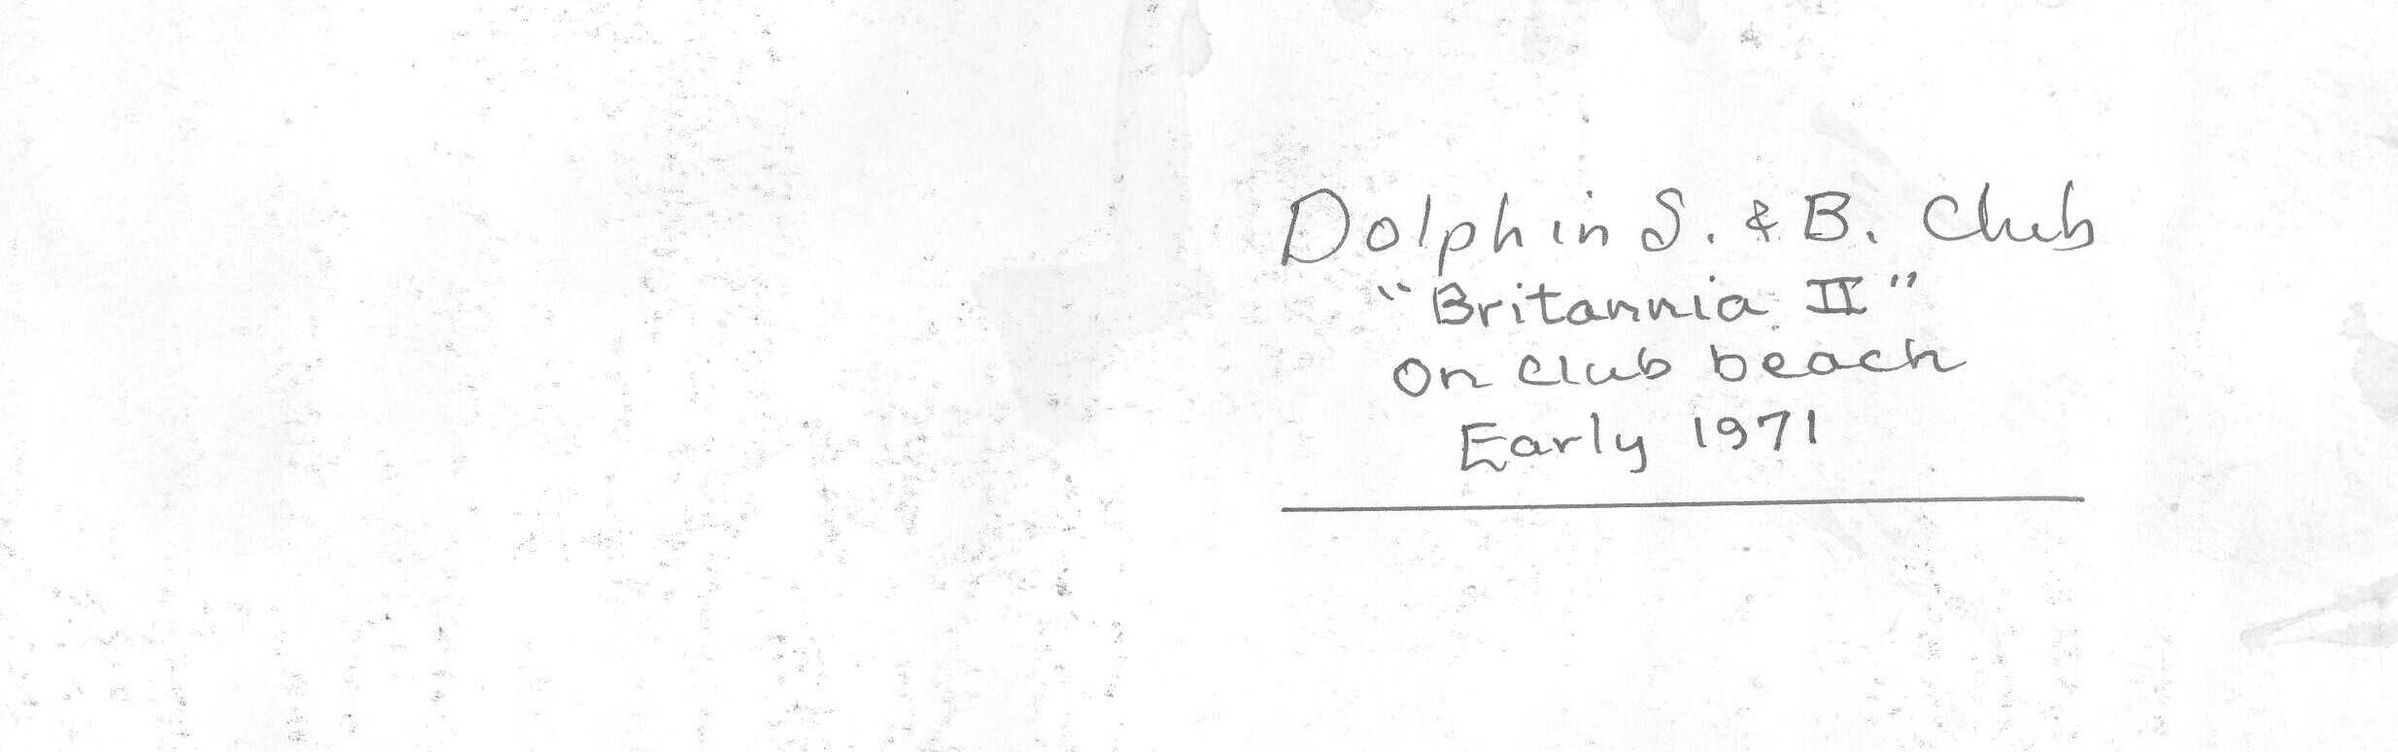 Dolphin S. & B. Club
"Britannia II"
On club beach
Early 1971